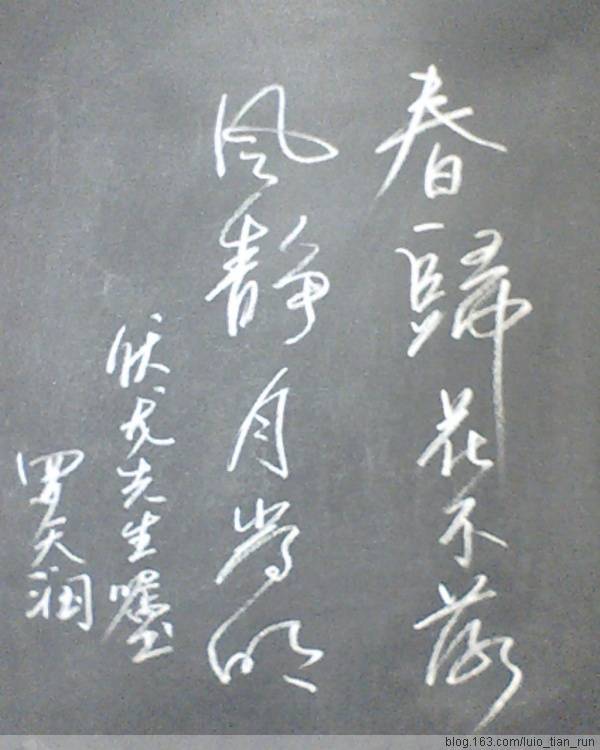 春歸花不落
风静月常明
伏龙先生
罗天润
blog.163.com/luio_tian_run